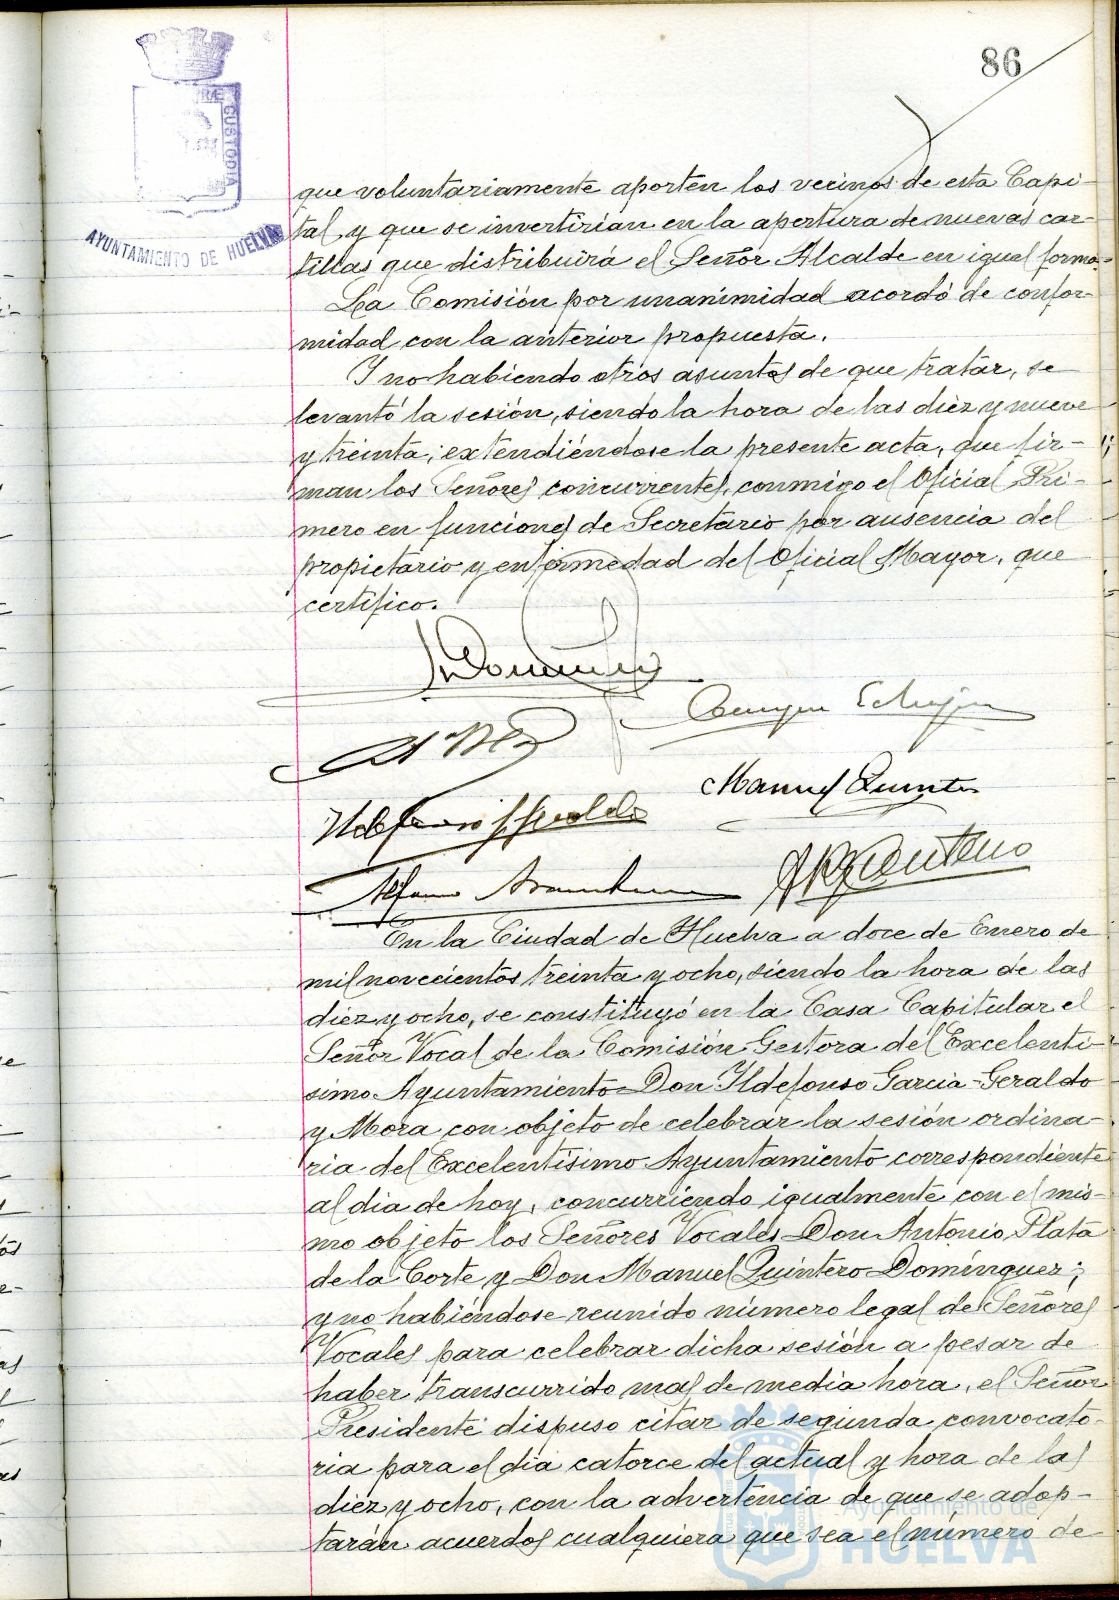 86
RÆ CUSTODIA
AYUNTAMIENTO DE HUELVA
que voluntariamente aporten los vecinos de esta Capi-
tal, y que se invertirían en la apertura de nuevas car-
tillas que distribuirá el Señor Alcalde en igual forma.
La Comisión por unanimidad acordó de confor-
midad con la anterior propuesta.
Y no habiendo otros asuntos de que tratar, se
levantó la sesión, siendo la hora de las diez y nueve
y treinta; extendiéndose la presente acta, que fir-
man los Señores concurrentes, conmigo el Oficial Pri-
mero en funciones de Secretario por ausencia del
propietario y enfermedad del Oficial Mayor, que
certifico.
Manuel Quintero
En la Ciudad de Huelva a doce de Enero de
mil novecientos treinta y ocho, siendo la hora de las
diez y ocho, se constituyó en la Casa Capitular el
Señor Vocal de la Comisión Gestora del Excelentí-
simo Ayuntamiento Don Ildefonso Garcia-Geraldo
y Mora con objeto de celebrar la sesión ordina-
ria del Excelentísimo Ayuntamiento correspondiente
al dia de hoy, concurriendo igualmente con el mis-
mo objeto los Señores Vocales Don Antonio Plata
de la Corte y Don Manuel Quintero Domínguez;
y no habiéndose reunido número legal de Señores
Vocales para celebrar dicha sesión a pesar de
haber transcurrido mas de media hora, el Señor
Presidente dispuso citar de segunda convocato-
ria para el dia catorce del actual y hora de las
diez y ocho, con la advertencia de que se adop-
tarán acuerdos cualquiera que sea el número de
Ayuntamiento de
HUELVA